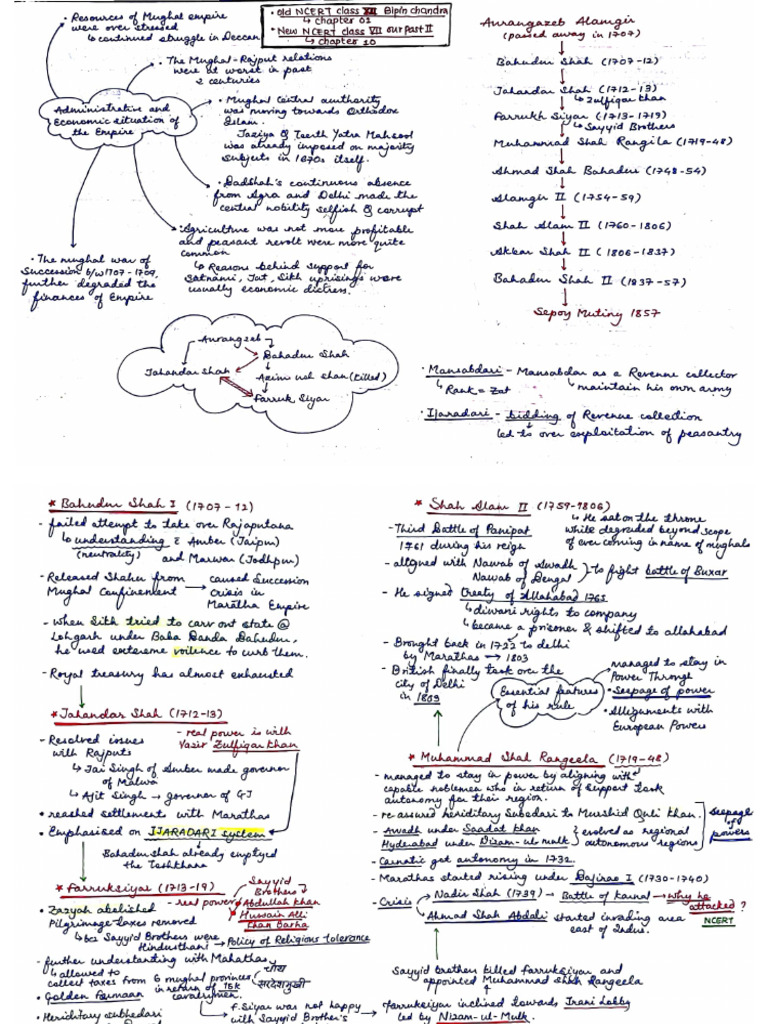 • Resources of Mughal empire
were over stressed
↳ continued struggle in Deccan
• Old NCERT class XII Bipin chandra
↳ chapter 01
• New NCERT class VII our Past II
↳ chapter 10
• The Mughal-Rajput relations
were at worst in past
2 centuries
Administrative and
Economic situation of
the Empire
• Mughal Central authority
was moving towards Orthodox
Islam.
Jaziya & Teerth Yatra Mahsool
was already imposed on majority
subjects in 1670s itself.
• Badshah's continuous absence
from Agra and Delhi made the
central nobility selfish & corrupt
• Agriculture was not more profitable
and peasant revolt were more quite
common
↳ Reasons behind support for
Satnami, Jat, Sikh uprisings were
usually economic distress.
• The mughal war of
Succession b/w 1707-1709,
further degraded the
finances of Empire
Aurangzeb Alamgir
(passed away in 1707)
Bahudur Shah (1707-12)
Jahandar Shah (1712-13)
↳ Zulfiqar khan
Farrukh Siyar (1713-1719)
↳ Sayyid Brothers
Muhammad Shah Rangila (1719-48)
Ahmad Shah Bahadur (1748-54)
Alamgir II (1754-59)
Shah Alam II (1760-1806)
Akbar Shah II (1806-1837)
Bahadur Shah II (1837-57)
Sepoy Mutiny 1857
Aurangzeb
Bahadur Shah
Jahandar Shah
Azim ush shan (killed)
Farruk Siyar
• Mansabdari - Mansabdar as a Revenue collector
↳ Rank = Zat
↳ maintain his own army
• Ijaradari - bidding of Revenue collection
led to over exploitation of peasantry
* Bahudur Shah I (1707-12)
- failed attempt to take over Rajaputana
↳ understanding c̄ Amber (Jaipur)
(neutrality) and Marwar (Jodhpur)
- Released Shahu from
Mughal Confinement → caused Succession
crisis in
Maratha Empire
- when Sikh tried to carv out state @
Lohgarh under Baba Banda Bahadur,
he used extereme voilence to curb them.
- Royal treasury has almost exhausted
* Jahandar Shah (1712-13)
- real power is with
Vazir Zulfiqar Khan
- Resolved issues
with Rajputs
↳ Jai Singh of Amber made governor
of Malwa
↳ Ajit Singh → governor of GJ
• reached settlements with Marathas
• Emphasised on IJARADARI system
↳ Bahadur Shah already emptyed
the Toshkhana
* Farruksiyar (1713-19)
- real power
Sayyid
Brothers
Abdullah Khan
Hussain Alli
Khan Barha
• Zazyah abolished
Pilgrimage taxes removed
↳ bcz Sayyid Brothers were
Hindusthani → Policy of Religious tolerance
- further understanding with Mahathas
↳ allowed to
collect taxes from 6 mughal provinces
in return of 15k
cavalrymen.
चौथ
सरदेशमुखी
• Golden Fermaan
• Heriditary subhedari
f. Siyar was not happy
with Sayyid Brother's
* Shah Alam II (1759-1806)
↳ He sat on the throne
while degraded beyond scope
of ever coming in name of mughals
- Third Battle of Panipat
1761 during his reign
- alligned with Nawab of Awadh
Nawab of Bengal
to fight battle of Buxar
- He signed treaty of Allahabad 1765
↳ diwani rights to company
↳ became a prisoner & shifted to allahabad
- Brought back in 1722 to delhi
by Marathas → 1803
- British finally took over the
city of Delhi
in 1803
Essential features
of his rule
managed to stay in
Power Through
• Seepage of power
• Allignments with
European Powers
* Muhammad Shah Rangeela (1719-48)
- managed to stay in power by aligning with
capable noblemen who in return of support took
autonomy for their region.
- re-assured hereditary Subedari to Murshid Quli Khan.
- Awadh under Saadat Khan
Hyderabad under Nizam-ul-mulk
evolved as regional
autonomous regions
Seepage
of
powers
- Carnatic got autonomy in 1732.
- Marathas started rising under Bajirao I (1730-1740)
- Crisis
Nadir Shah (1739) → Battle of Karnal → Why he
attacked?
NCERT
Ahmad Shah Abdali started invading area
east of Indus.
Sayyid brothers killed farrukSiyar and
appointed Muhammad Shah Rangeela
farrukSiyar inclined towards Irani Lobby
led by Nizam-ul-Mulk.